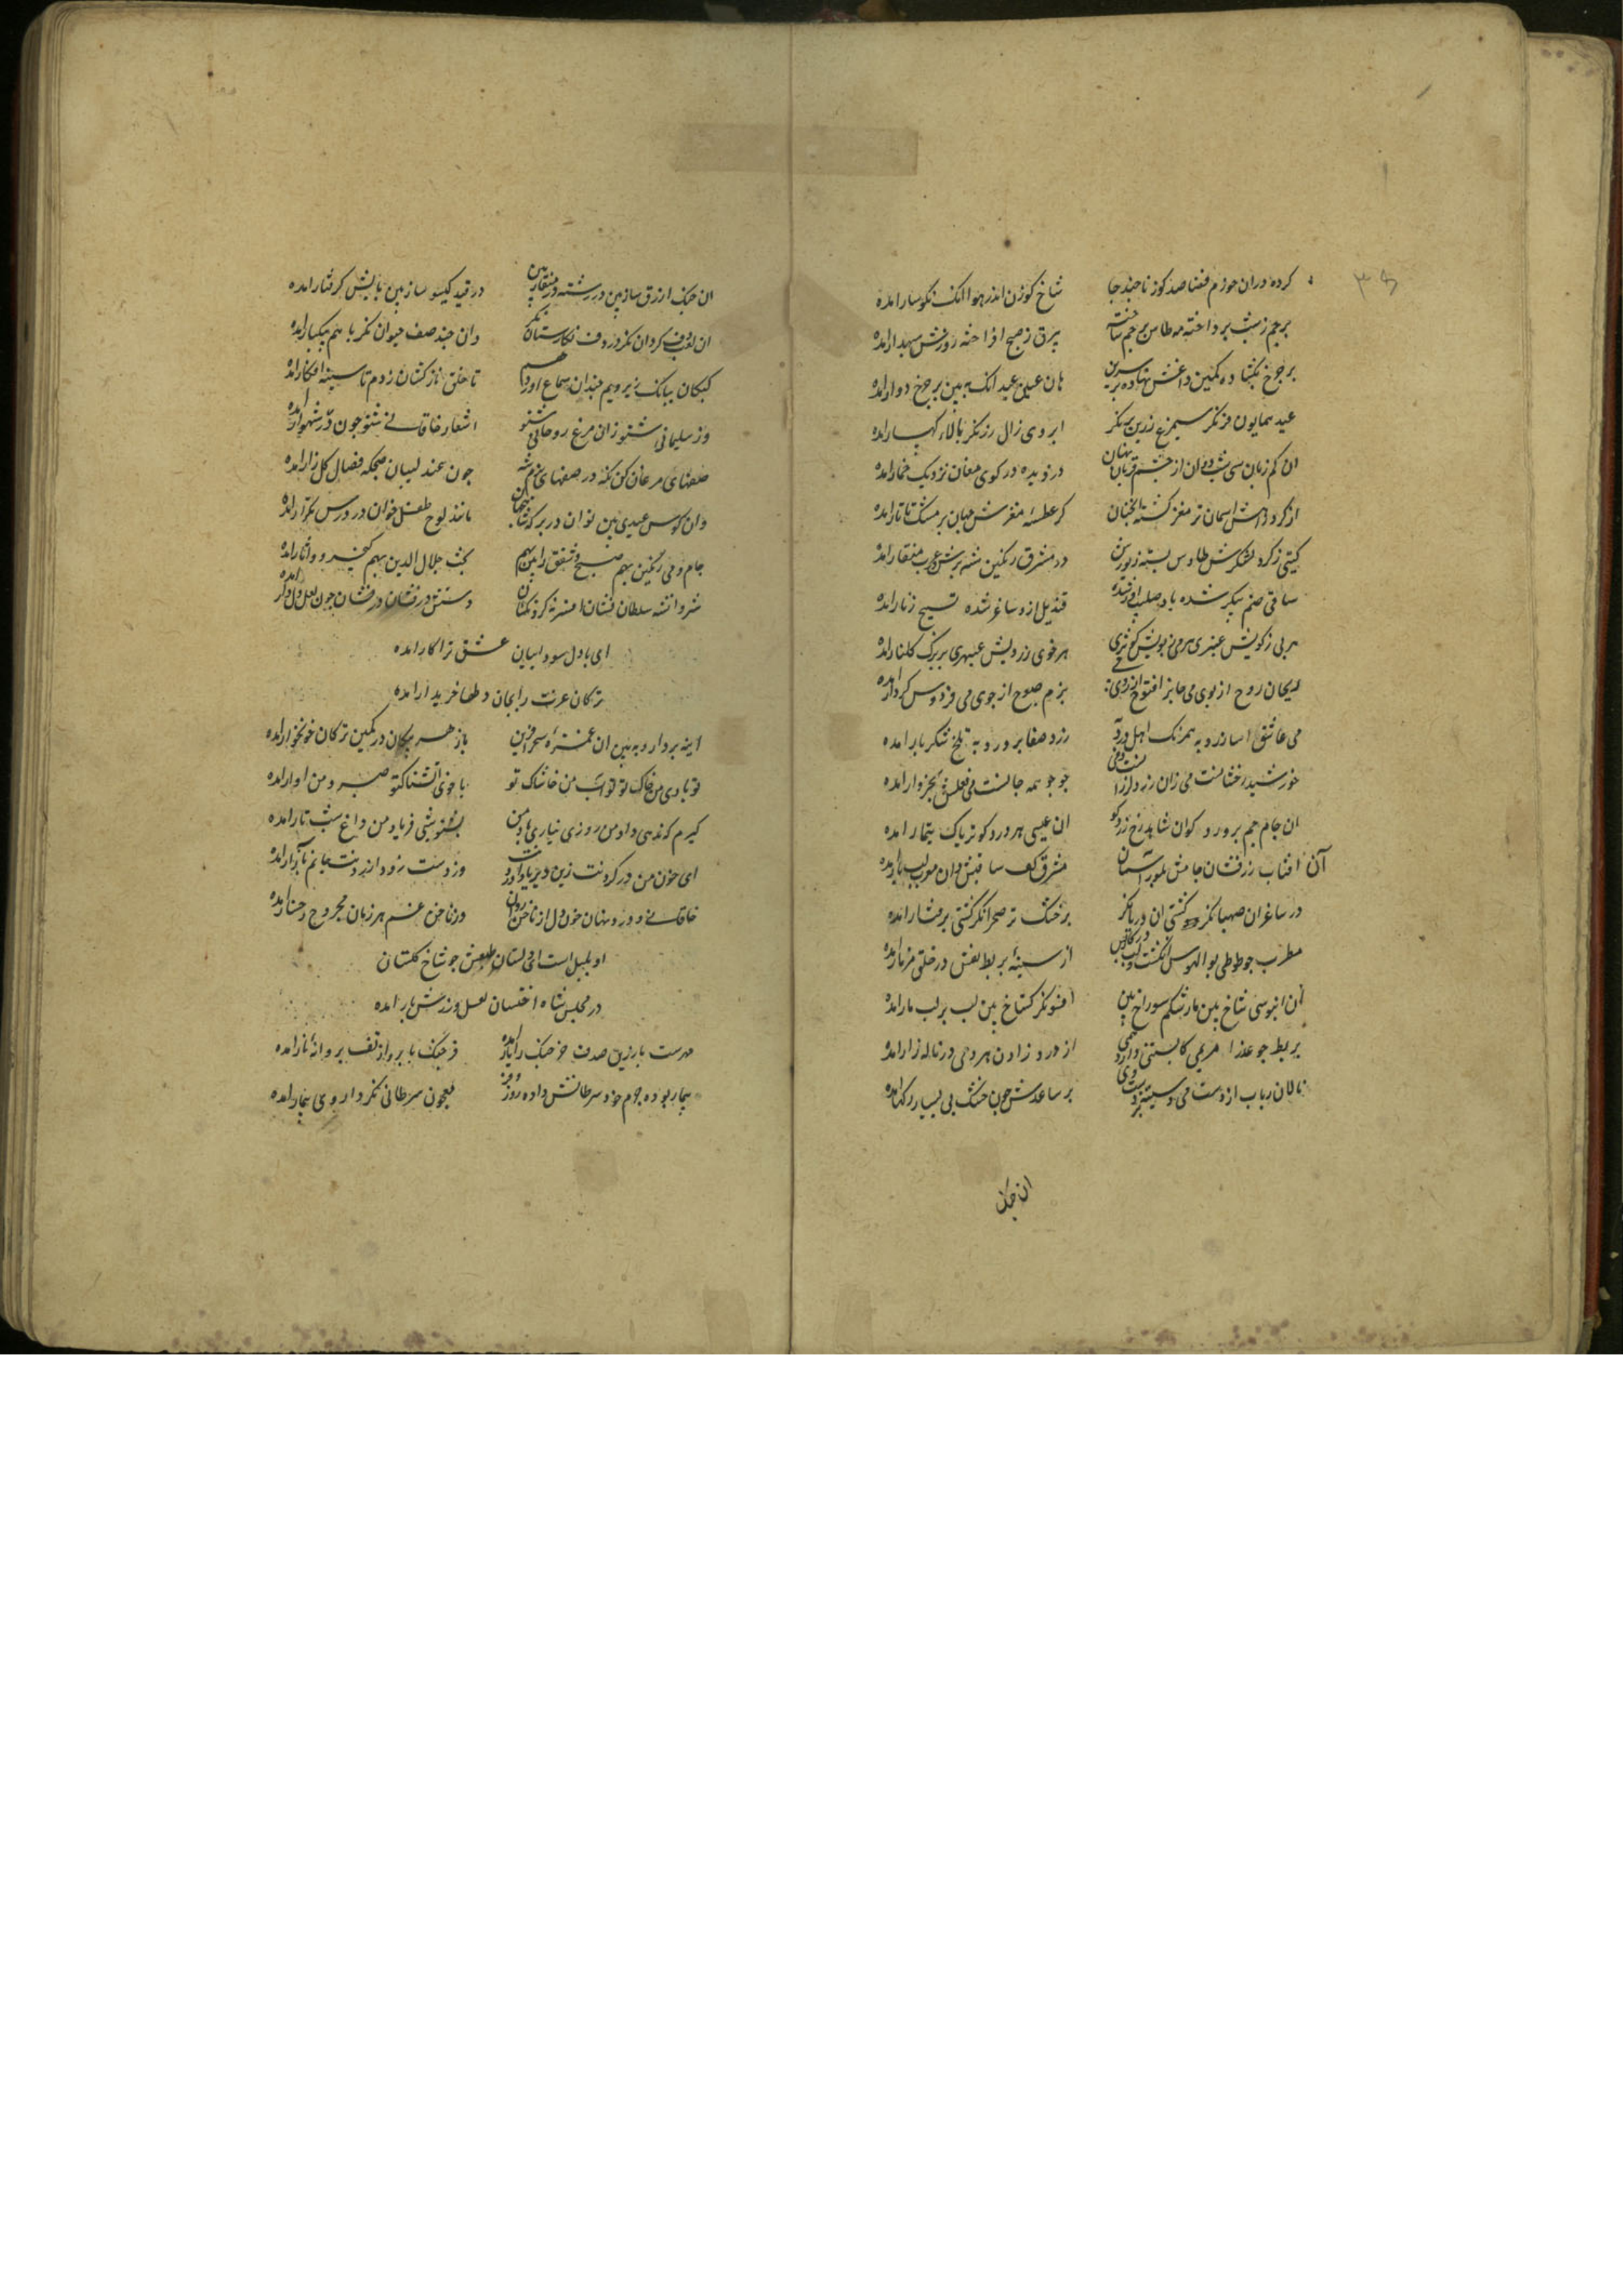 کرده دران خورم فضا صد کوزنا چند جا شاخ کوزن اندر هوا انک نکوسار امده
پرجم ز شب برداخته مه طاس پرجم ساخته بیرق ز صبح افراخته روزش سپهدار امده
بر چرخ بکشاده کمین داغش نهاده بر سرین هان عین عید انک ببین بر چرخ دوار امده
عید همایون فر نکر سیمرغ زرین پر نکر ابروی زال زر نکر بالاء کهسار امده
ان کم زبان سی شب دوان از چشم قربان نهان دزدیده در کوی مغان نزدیک خمار امده
از کرد راهش اسمان تر مغز کشته انچنان کز عطسه مغزش جهان پر مشک تاتار امده
کیتی ز کرد لشکرش طاوس بسته زیورش در مشرق رنکین شده پرش در غرب منقار امده
ساقی صنم پیکر شده باده صلیب اور شده قندیل ازو ساغر شده تسبیح زنار امده
هر پی ز کویش عنبری هر می ز بویش کوثری هر خوی ز رویش عبهری بر برک کلنار امده
ریحان روح از بوی می جانرا فتوح از روی می بزم صبوح از جوی می فردوس کردار امده
می عاشق اسا زرد به همرنک اهل درد به زرد صفا پرورد به تلخ شکربار امده
خورشید رخشانست می زان زرد و لرزانست می جو جو همه جانست می فعلش بخروار امده
ان جام جم پرورد کو ان شاهد رخ زرد کو ان عیسی هر درد کو تریاک بیمار امده
آن افتاب زرفشان جامش بلورین اسمان مشرق کف ساقیش دان مغرب لب یار امده
در ساغر ان صهبا نکر در کشتی ان دریا نکر بر خشک تر صحرا نکر کشتی برفتار امده
مطرب چو طوطی بوالهوس انکشت و لب در کار و بس از سینه بربط نفس در حلق مزمار امده
آن ابنوسی شاخ بین مار شکم سوراخ بین افسونکر کستاخ بین لب بر لب مار امده
بربط چو عذرا مریمی کابستنی دارد همی از درد زادن هر دمی در ناله زار امده
نالان رباب از دست می در سینه دست وی بر ساعدش چون خشک نی بسیار رک امده
ان چنک
ان چنک ازرق ساز بین در رشته در منقار بین در قید کیسو ساز بین پایش کرفتار امده
ان لعب دف کردان نکر در دف شکارستان نکر وان چند صف حیوان نکر با هم بپیکار امده
کبکان ببانک زیر و بم چندان سماع اورده هم تا حلق نازکشان ز دم تا سینه افکار امده
وز سلیمانی شنو زان مرغ روحانی شنو اشعار خاقانی شنو چون در شهوار امده
صفهای مرغان کن نکه در صفهای بزم شه چون عندلیبان صبحکه فصال کلزار امده
وان کوس عیدی بین نوان در بر مانند لوح طفل خوان در درس تکرار امده
جام و می رنکین بهم صبح و شفق را بین بهم بخت جلال الدین بهم کیخسرو وار امده
شروانشه سلطان نشان افسر ده کردنکشان دستش در افشان در فشان چون لعل دلدار امده
ای با دل سوداییان عشق ترا کار امده
ترکان غمزت را بجان دلها خریدار امده
اینه بردار و ببین ان غمزه سحرافرین بازهر پیکان در کمین ترکان خونخوار امده
تو بادی و من خاک تو تو آب و من خاشاک تو با خوی آتشناک تو صبر و من اوار امده
کیرم که ندهی داد من روزی نیاری یاد من بشنو شبی فریاد من داغ شب تار امده
ای خون من در کردنت زین دیر یاد اوردنت وز دست زود ازردنت جانم بازار امده
خاقانی و درد نهان خون دل از ناخن روان وز ناخن غم هر زمان مجروح رخسار امده
او بلبل است ای دلستان طبعش چو شاخ کلستان
در مجلس شاه اخستان لعل و زرش بار امده
مهرست یا زرین صدف خرچنک را یار امده خرچنک با پروار تف پروانه نار امده
بیمار بوده جرم خور سرطانش داده زور و فر معجون سرطانی نکر داروی بیمار امده